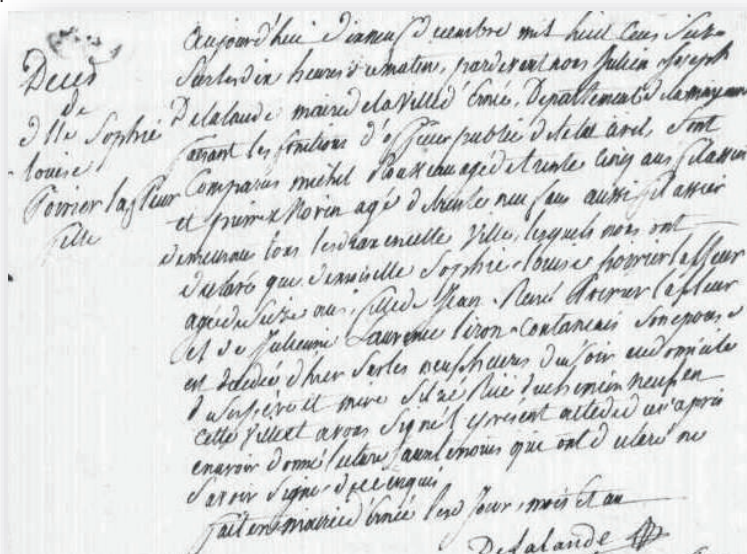 Deces
de
dlle Sophie
louise
Poirier lafleur
fille
aujourd'hui dixneuf decembre mil huit cens Seize
Sur les dix heures du matin, pardevant nous Julien Joseph
Delalande maire de la Ville d'Ernée, Departement de la mayenne
faisant les fonctions d'officier public de letat civil, Sont
Comparus michel agé de trente cinq ans filassier
et pierre Morin agé de trente neuf ans aussi filassier
demeurant tous les deux en cette Ville, lesquels nous ont
declaré que demoiselle Sophie louise poirier lafleur
agée de Seize ans, fille de Jean René Poirier lafleur
et de Julienne Laurence Contancais Son epouse
est decedée d'hier Sur les neuf heures du Soir au domicile
de Ses père et mere Situé Rüe du chemin neuf en
cette Ville et avons Signé le present acte de deces après
en avoir donné lecture aux temoins qui ont declaré ne
Savoir Signer de ce enquis
fait en mairie d'Ernée lesd Jour, mois et an
Delalande